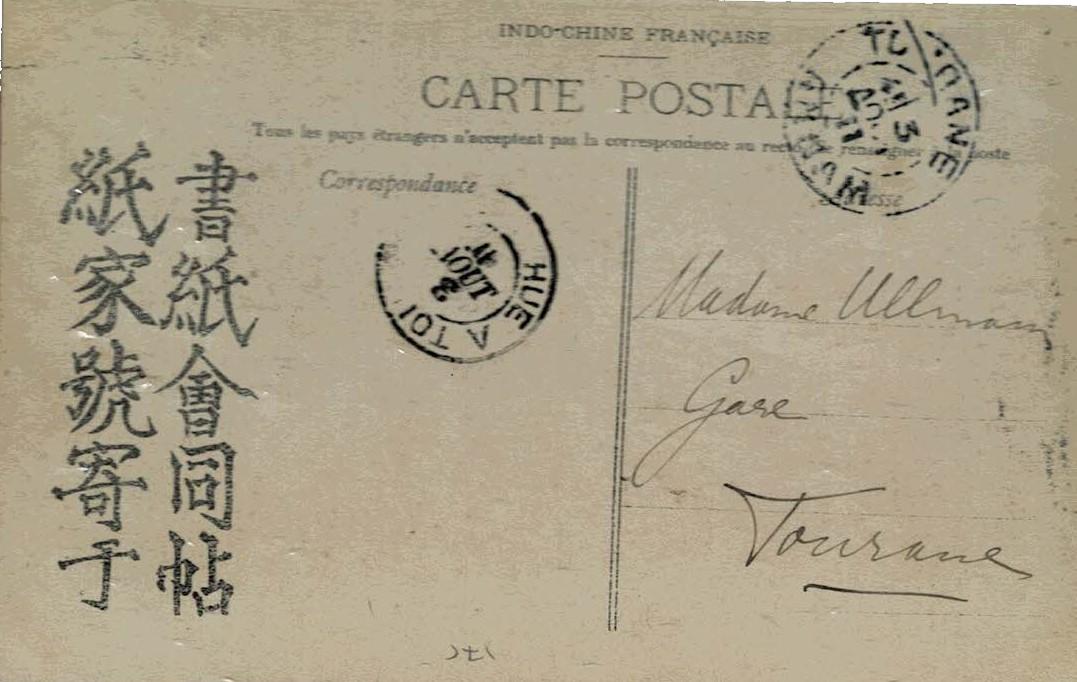 INDO-CHINE FRANÇAISE
CARTE POSTALE
Tous les pays étrangers n'acceptent pas la correspondance au recto se renseigner à la poste
Correspondance
Adresse
書紙會同帖
紙家號寄于
HUE A TO
3
AOUT
11
ANNAM
3
11
Madame Ullmann
Gare
Tourane